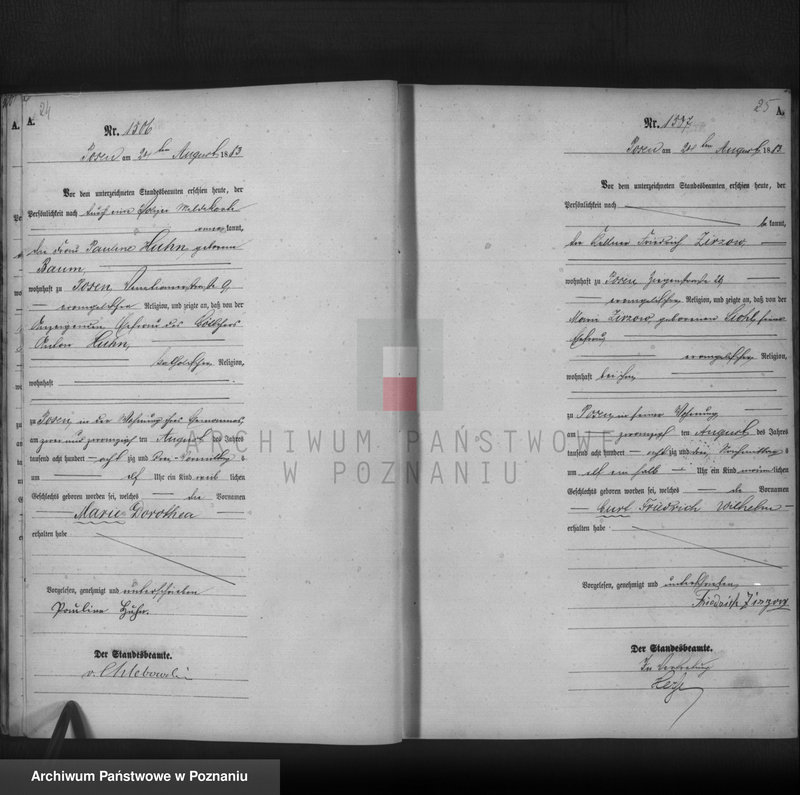 24
A.
A.
Nr. 1506
Posen am 24 ten August 1883
Vor dem unterzeichneten Standesbeamten erschien heute, der
Persönlichkeit nach durch eine
kannt,
die Frau Pauline Huhn geborene
Baum,
wohnhaft zu Posen, 9,
evangelischer Religion, und zeigte an, daß von der
Ehefrau des
Anton Huhn,
katholischer Religion,
wohnhaft
zu Posen in der Wohnung des
am zwei und zwanzigsten ten August des Jahres
tausend acht hundert acht zig und drei
um elf Uhr ein Kind weib lichen
Geschlechts geboren worden sei, welches die Vornamen
Marie Dorothea
erhalten habe
Vorgelesen, genehmigt und unterschrieben
Pauline Huhn.
Der Standesbeamte.
v. Chlebowski
25
A.
Nr. 1507
Posen am 24 ten August 1883
Vor dem unterzeichneten Standesbeamten erschien heute, der
Persönlichkeit nach
be kannt,
der Kellner Friedrich Zirzow,
wohnhaft zu Posen
evangelischer Religion, und zeigte an, daß von der
Marie Zirzow geborenen seiner
Ehefrau
evangelischer Religion,
wohnhaft bei ihm
zu Posen in seiner Wohnung
am zwanzigsten ten August des Jahres
tausend acht hundert acht zig und drei Vormittags
um elf ein halb Uhr ein Kind männ lichen
Geschlechts geboren worden sei, welches die Vornamen
Curt Friedrich Wilhelm
erhalten habe
Vorgelesen, genehmigt und unterschrieben
Friedrich Zirzow
Der Standesbeamte.
In Vertretung
ARCHIWUM PAŃSTWOWE
W POZNANIU
Archiwum Państwowe w Poznaniu